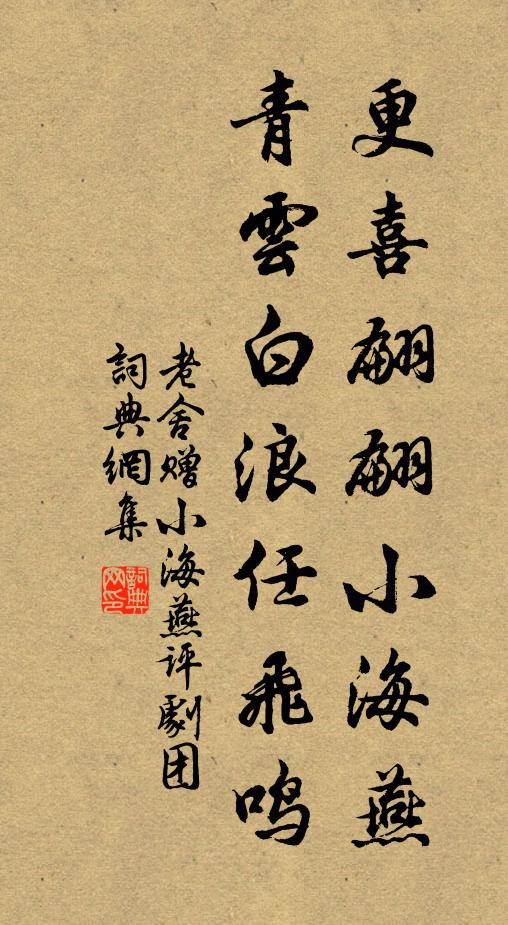 更喜翩翩小海燕
青雲白浪任飛鸣
老舍赠小海燕评劇团
詞典網集
詞典
网印